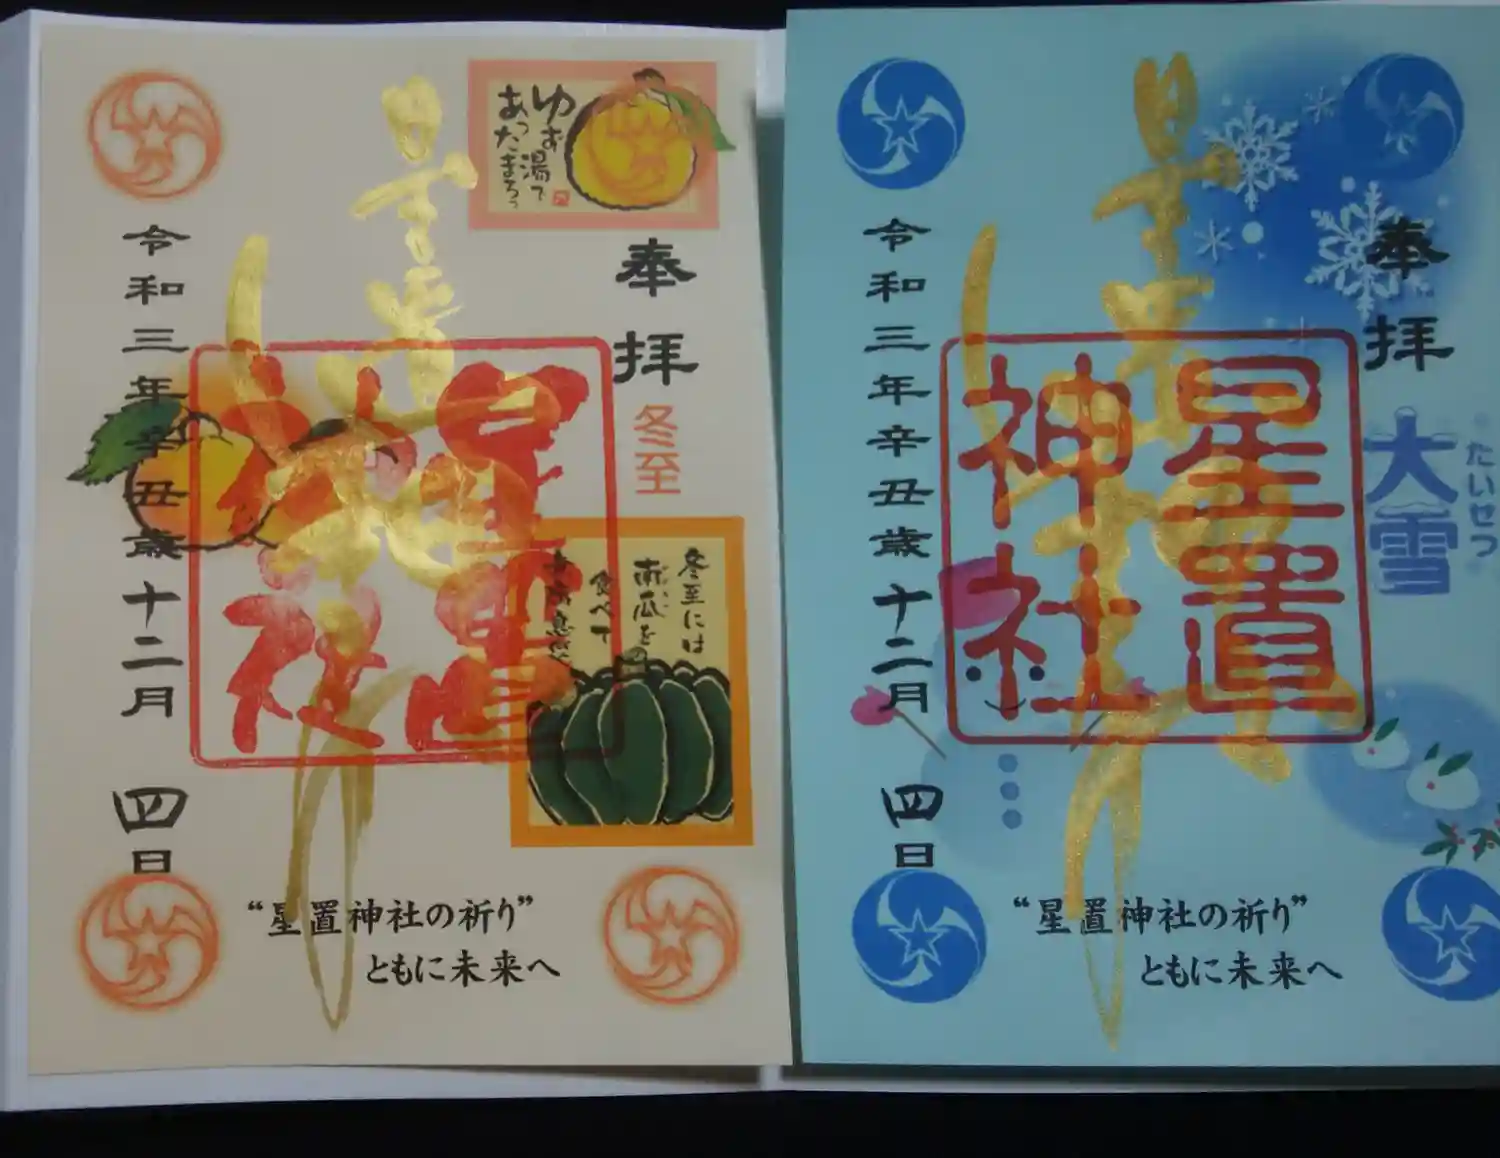 ゆず湯で
あったまろっ
奉拝
冬至
冬至には
南瓜を
食べて
星置
神社
令和三年辛丑歳十二月
四日
“星置神社の祈り”
ともに未来へ
奉拝
大雪
たいせつ
星置
神社
令和三年辛丑歳十二月
四日
“星置神社の祈り”
ともに未来へ